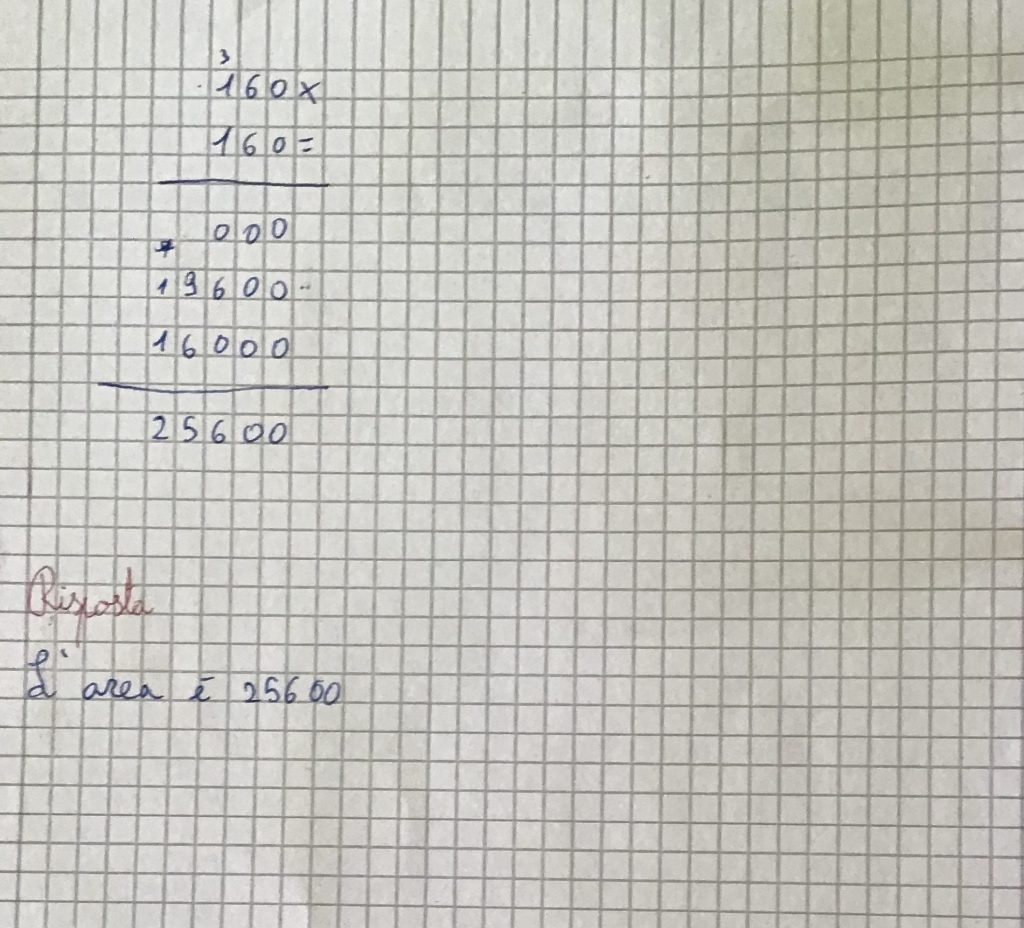 3
160x
160=
000
19600
16000
25600
Risposta
L'area è 25600